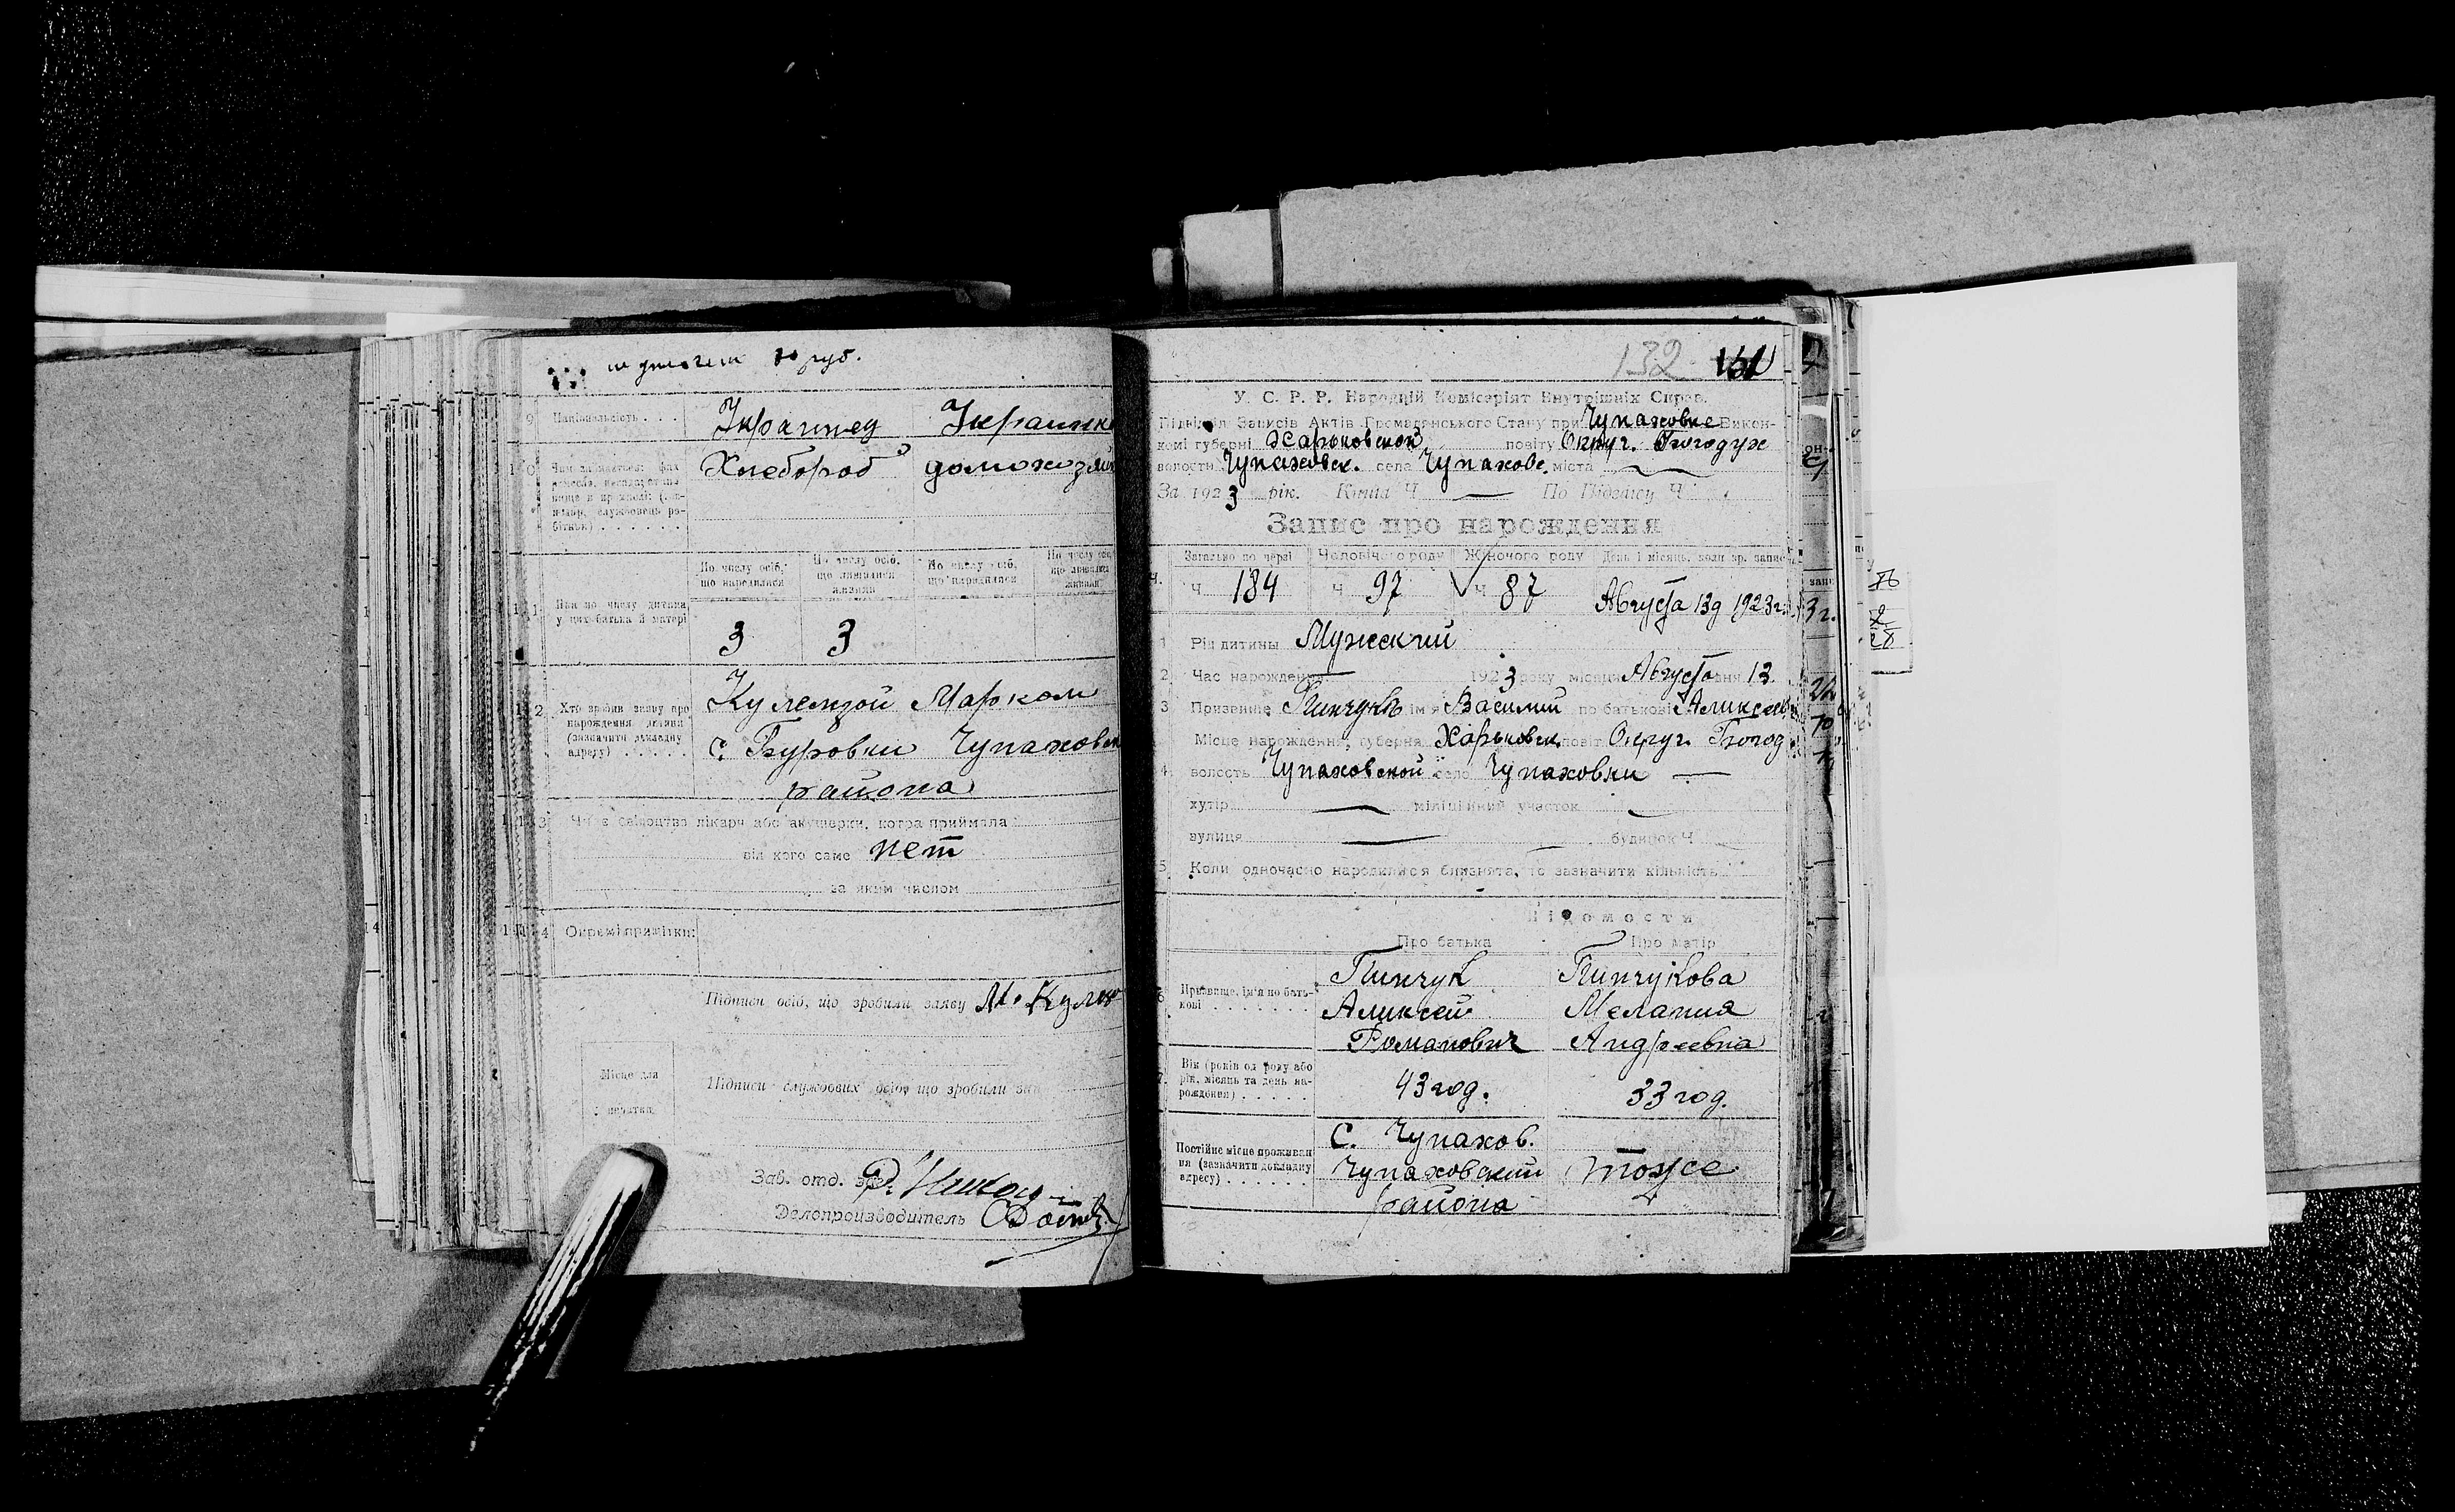 9 Національність . . . Украинец Украинка
10 Хлебороб домохозяйк
По числу осіб, що народилися
По числу осіб, що лишилися живими
По числу осіб, що народилися
По числу осіб що лишилися живими
11 Яка по числу дитина у цих батька й матері
3 3
12 Хто зробив заяву про нарождення дитини (зазначити докладну адресу) . . . . . .
Кулемзой Марком
с. Буровки Чупаховск
района
13 Чи є свідоцтво лікаря або акушерки, котра приймала
від кого саме нет
за яким числом
14 Окремі примітки:
Підписи осіб, що зробили заяву М. Кулем
Місце для печатки
Підписи службових осіб, що зробили
Зав. отд. зре.
Делопроизводитель
132 161
У. С. Р. Р. Народній Комісаріят Внутрішніх Справ.
Підвідділ Записів Актів Громадянського Стану при Чупаховке Викон-
комі губерні Харьковской повіту Округ. Богодух
волости Чупаховск. села Чупахове. міста
За 1923 рік. Книга Ч По Підзагсу Ч
Запис про нарождення
Загально по черзі Чоловічого роду Жіночого роду День і місяць, коли зр. запис
Ч 184 Ч 97 Ч 87 Августа 13д 1923г.
1 Рід дитини Мужеский
2 Час нарождення 1923 року місяця Августа дня 13
3 Призвище Пинчукъ ім'я Василий по батькові Аликсеев
Місце нарождення, губерня Харьковск. повіт Округ. Богод
4 волость Чупаховской село Чупаховки
хутір міліційний участок
вулиця будинок Ч
5 Коли одночасно народилися близнята, то зазначити кількість
Відомости
Про батька Про матір
6 Призвище, ім'я по батькові . . . . . . .
Пинчук Пинчукова
Аликсей Мелания
Романович Андреевна
7 Вік (років од роду або рік, місяць та день народження) . . . . .
43 год. 33 год.
Постійне місце проживання (зазначити докладну адресу) . . . . . .
С. Чупахов.
Чупаховский тоже
района